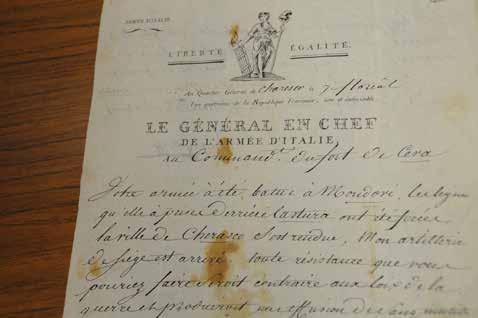 ARMÉE D'ITALIE.
LIBERTÉ ÉGALITÉ.
Au Quartier Général de Cherasco le 7 floréal
l'an quatrième de la République Française, une et indivisible.
LE GÉNÉRAL EN CHEF
DE L'ARMÉE D'ITALIE,
au Command.t du fort de Ceva
Votre armée a été battue à Mondovi, les lignes
qu'elle a derrière la stura ont été forcées
la ville de Cherasco s'est rendue, Mon artillerie
de siège est arrivée. toute résistance que vous
pourriez faire seroit contraire aux loix de la
guerre et produiroit une effusion de sang